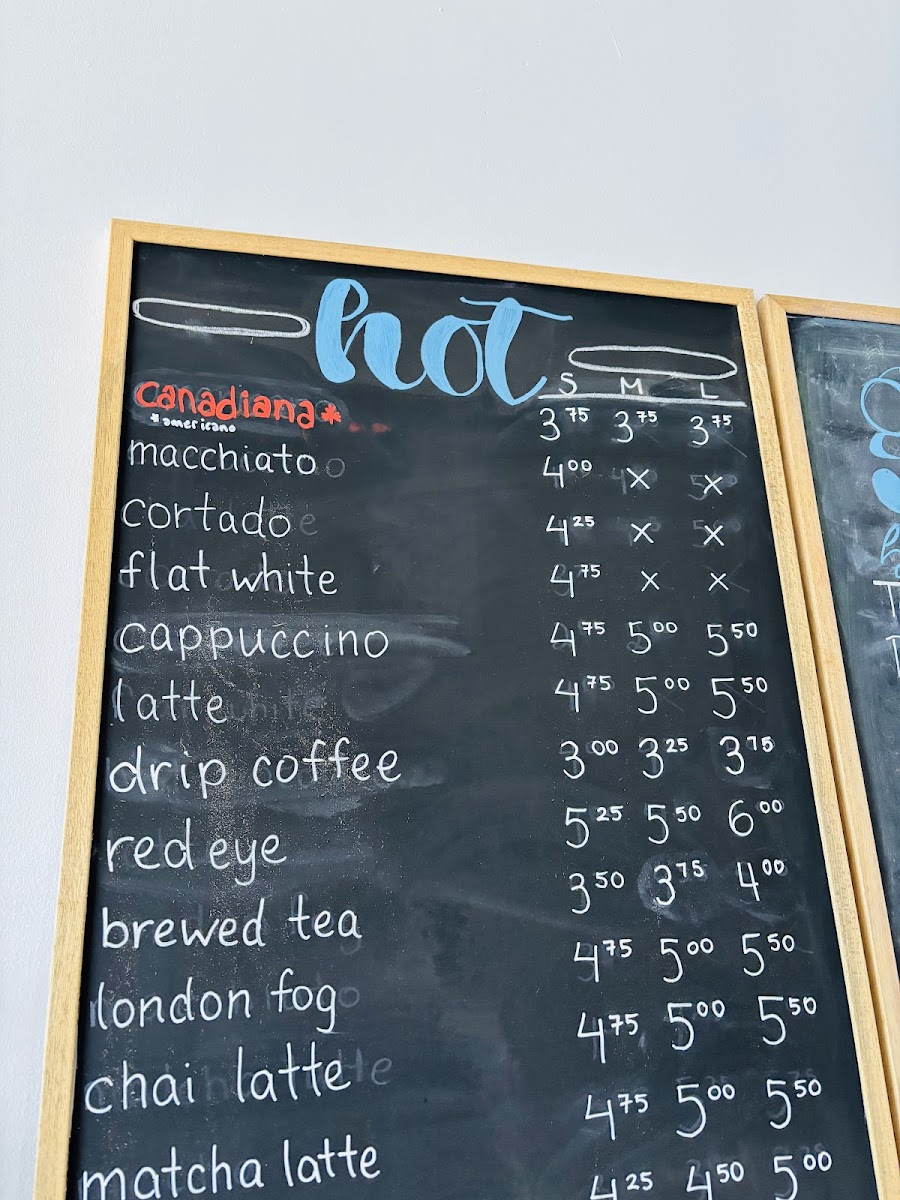 hot
S M L
canadiana* 3.75 3.75 3.75
*americano
macchiato 4.00 x x
cortado 4.25 x x
flat white 4.75 x x
cappuccino 4.75 5.00 5.50
latte 4.75 5.00 5.50
drip coffee 3.00 3.25 3.75
red eye 5.25 5.50 6.00
brewed tea 3.50 3.75 4.00
london fog 4.75 5.00 5.50
chai latte 4.75 5.00 5.50
matcha latte 4.75 5.00 5.50
4.25 4.50 5.00